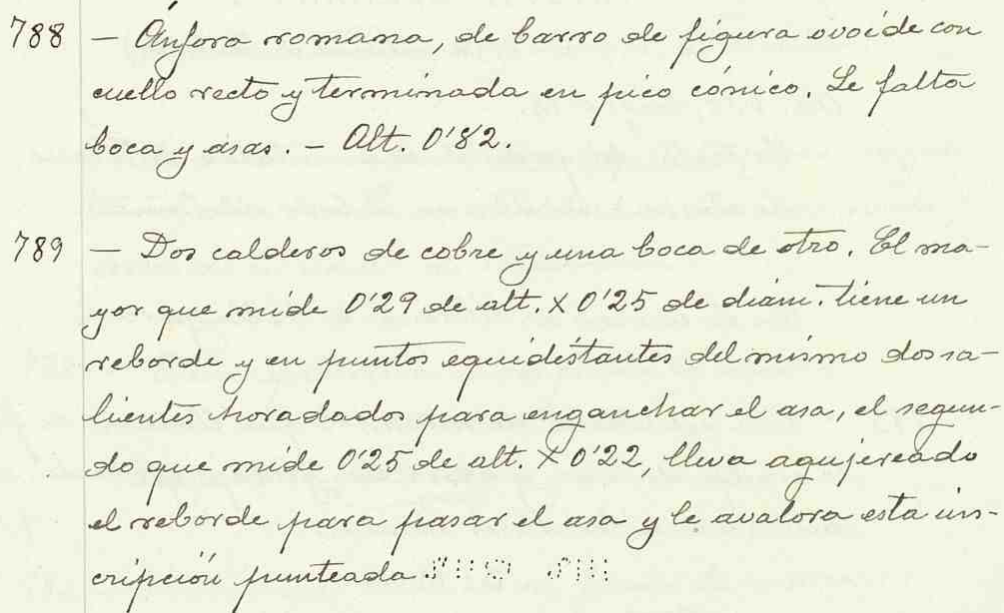 788 — Ánfora romana, de barro de figura ovoide con
cuello recto y terminada en pico cónico. Le falta
boca y asas. — Alt. 0'82.
789 — Dos calderos de cobre y una boca de otro. El ma-
yor que mide 0'29 de alt. X 0'25 de diám. tiene un
reborde y en puntos equidistantes del mismo dos sa-
lientes horadados para enganchar el asa, el segun-
do que mide 0'25 de alt. X 0'22, lleva agujereado
el reborde para pasar el asa y le avalora esta ins-
cripción punteada